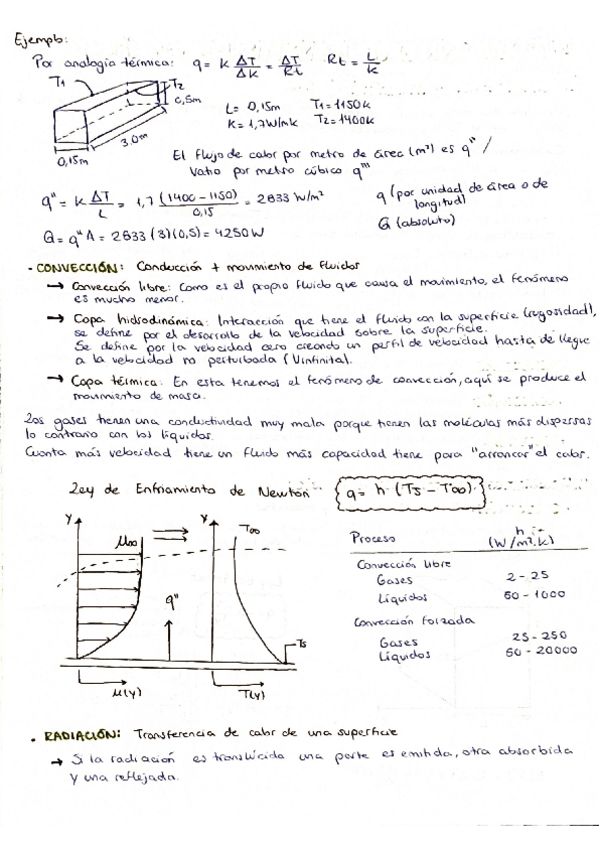 Ejemplo:
Por analogía térmica: q = k ΔT/Δk = ΔT/Rt Rt = L/k
T1 T2
0,5m
3,0m
0,15m
L= 0,15m T1=1150k
K= 1,7W/mk T2=1400k
El flujo de calor por metro de área (m²) es q" /
Vatio por metro cúbico q'''
q" = k ΔT/L = 1,7 (1400-1150)/0,15 = 2833 W/m²
q (por unidad de área o de
longitud)
Q (absoluto)
Q = q" A = 2833 (3)(0,5) = 4250W
· CONVECCIÓN: Conducción + movimiento de fluidos
→ Convección libre: Como es el propio fluido que causa el movimiento, el fenómeno
es mucho menor.
→ Capa hidrodinámica: Interacción que tiene el fluido con la superficie (rugosidad),
se define por el desarrollo de la velocidad sobre la superficie.
Se define por la velocidad cero creando un perfil de velocidad hasta que llegue
a la velocidad no perturbada (Uinfinita).
→ Capa térmica: En esta tenemos el fenómeno de convección, aquí se produce el
movimiento de masa.
Los gases tienen una conductividad muy mala porque tienen las moléculas más dispersas
lo contrario con los líquidos.
Cuanta más velocidad tiene un fluido más capacidad tiene para "arrancar" el calor.
Ley de Enfriamiento de Newton q = h (Ts - T∞)
y μ∞
y T∞
q"
Ts
μ(y)
T(y)
Proceso h (W/m².k)
Convección libre
Gases 2-25
Líquidos 50-1000
Convección forzada
Gases 25-250
Líquidos 50-20000
· RADIACIÓN: Transferencia de calor de una superficie
→ Si la radiación es translúcida una parte es emitida, otra absorbida
y una reflejada.